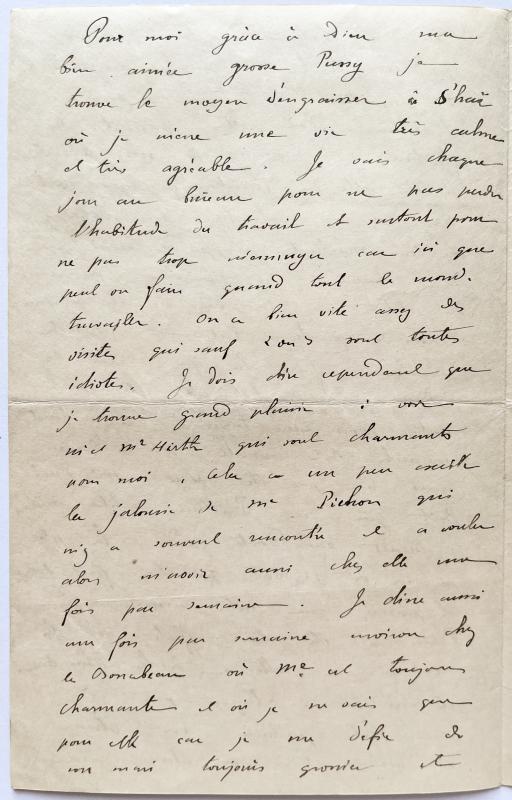 Pour moi grâce à Dieu ma
bien aimée grosse Pussy je
trouve le moyen d'engraisser à S'haï
où je mène une vie très calme
et très agréable. Je vais chaque
jour au bureau pour ne pas perdre
l'habitude du travail et surtout pour
ne pas trop m'ennuyer car ici que
peut on faire quand tout le monde
travailler. On a bien vite assez des
visites qui sauf 2 ou 3 sont toutes
idiotes. Je dois dire cependant que
je trouve grand plaisir à voir
m et Me Hirth qui sont charmants
pour moi, cela a un peu excité
la jalousie de Me Pichon qui
m'y a souvent rencontré et a voulu
alors m'avoir aussi chez elle une
fois par semaine. Je dine aussi
une fois par semaine environ chez
le Bonabeau où Me est toujours
charmante et où je ne vais que
pour elle car je me défie de
son mari toujours grossier et